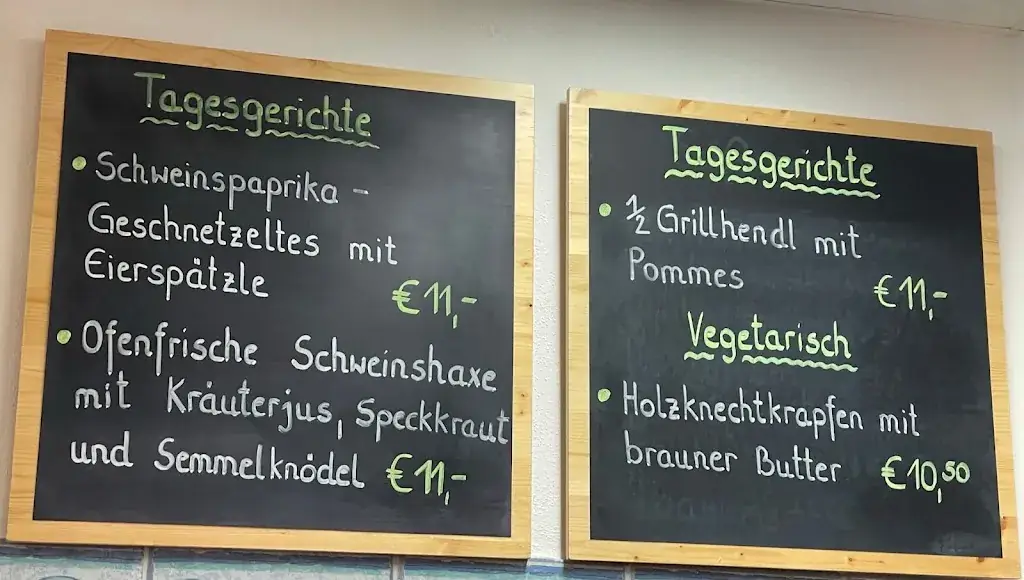 Tagesgerichte
• Schweinspaprika -
Geschnetzeltes mit
Eierspätzle
€ 11,-
• Ofenfrische Schweinshaxe
mit Kräuterjus, Speckkraut
und Semmelknödel € 11,-
Tagesgerichte
• 1/2 Grillhendl mit
Pommes
€ 11,-
Vegetarisch
• Holzknechtkrapfen mit
brauner Butter € 10,50